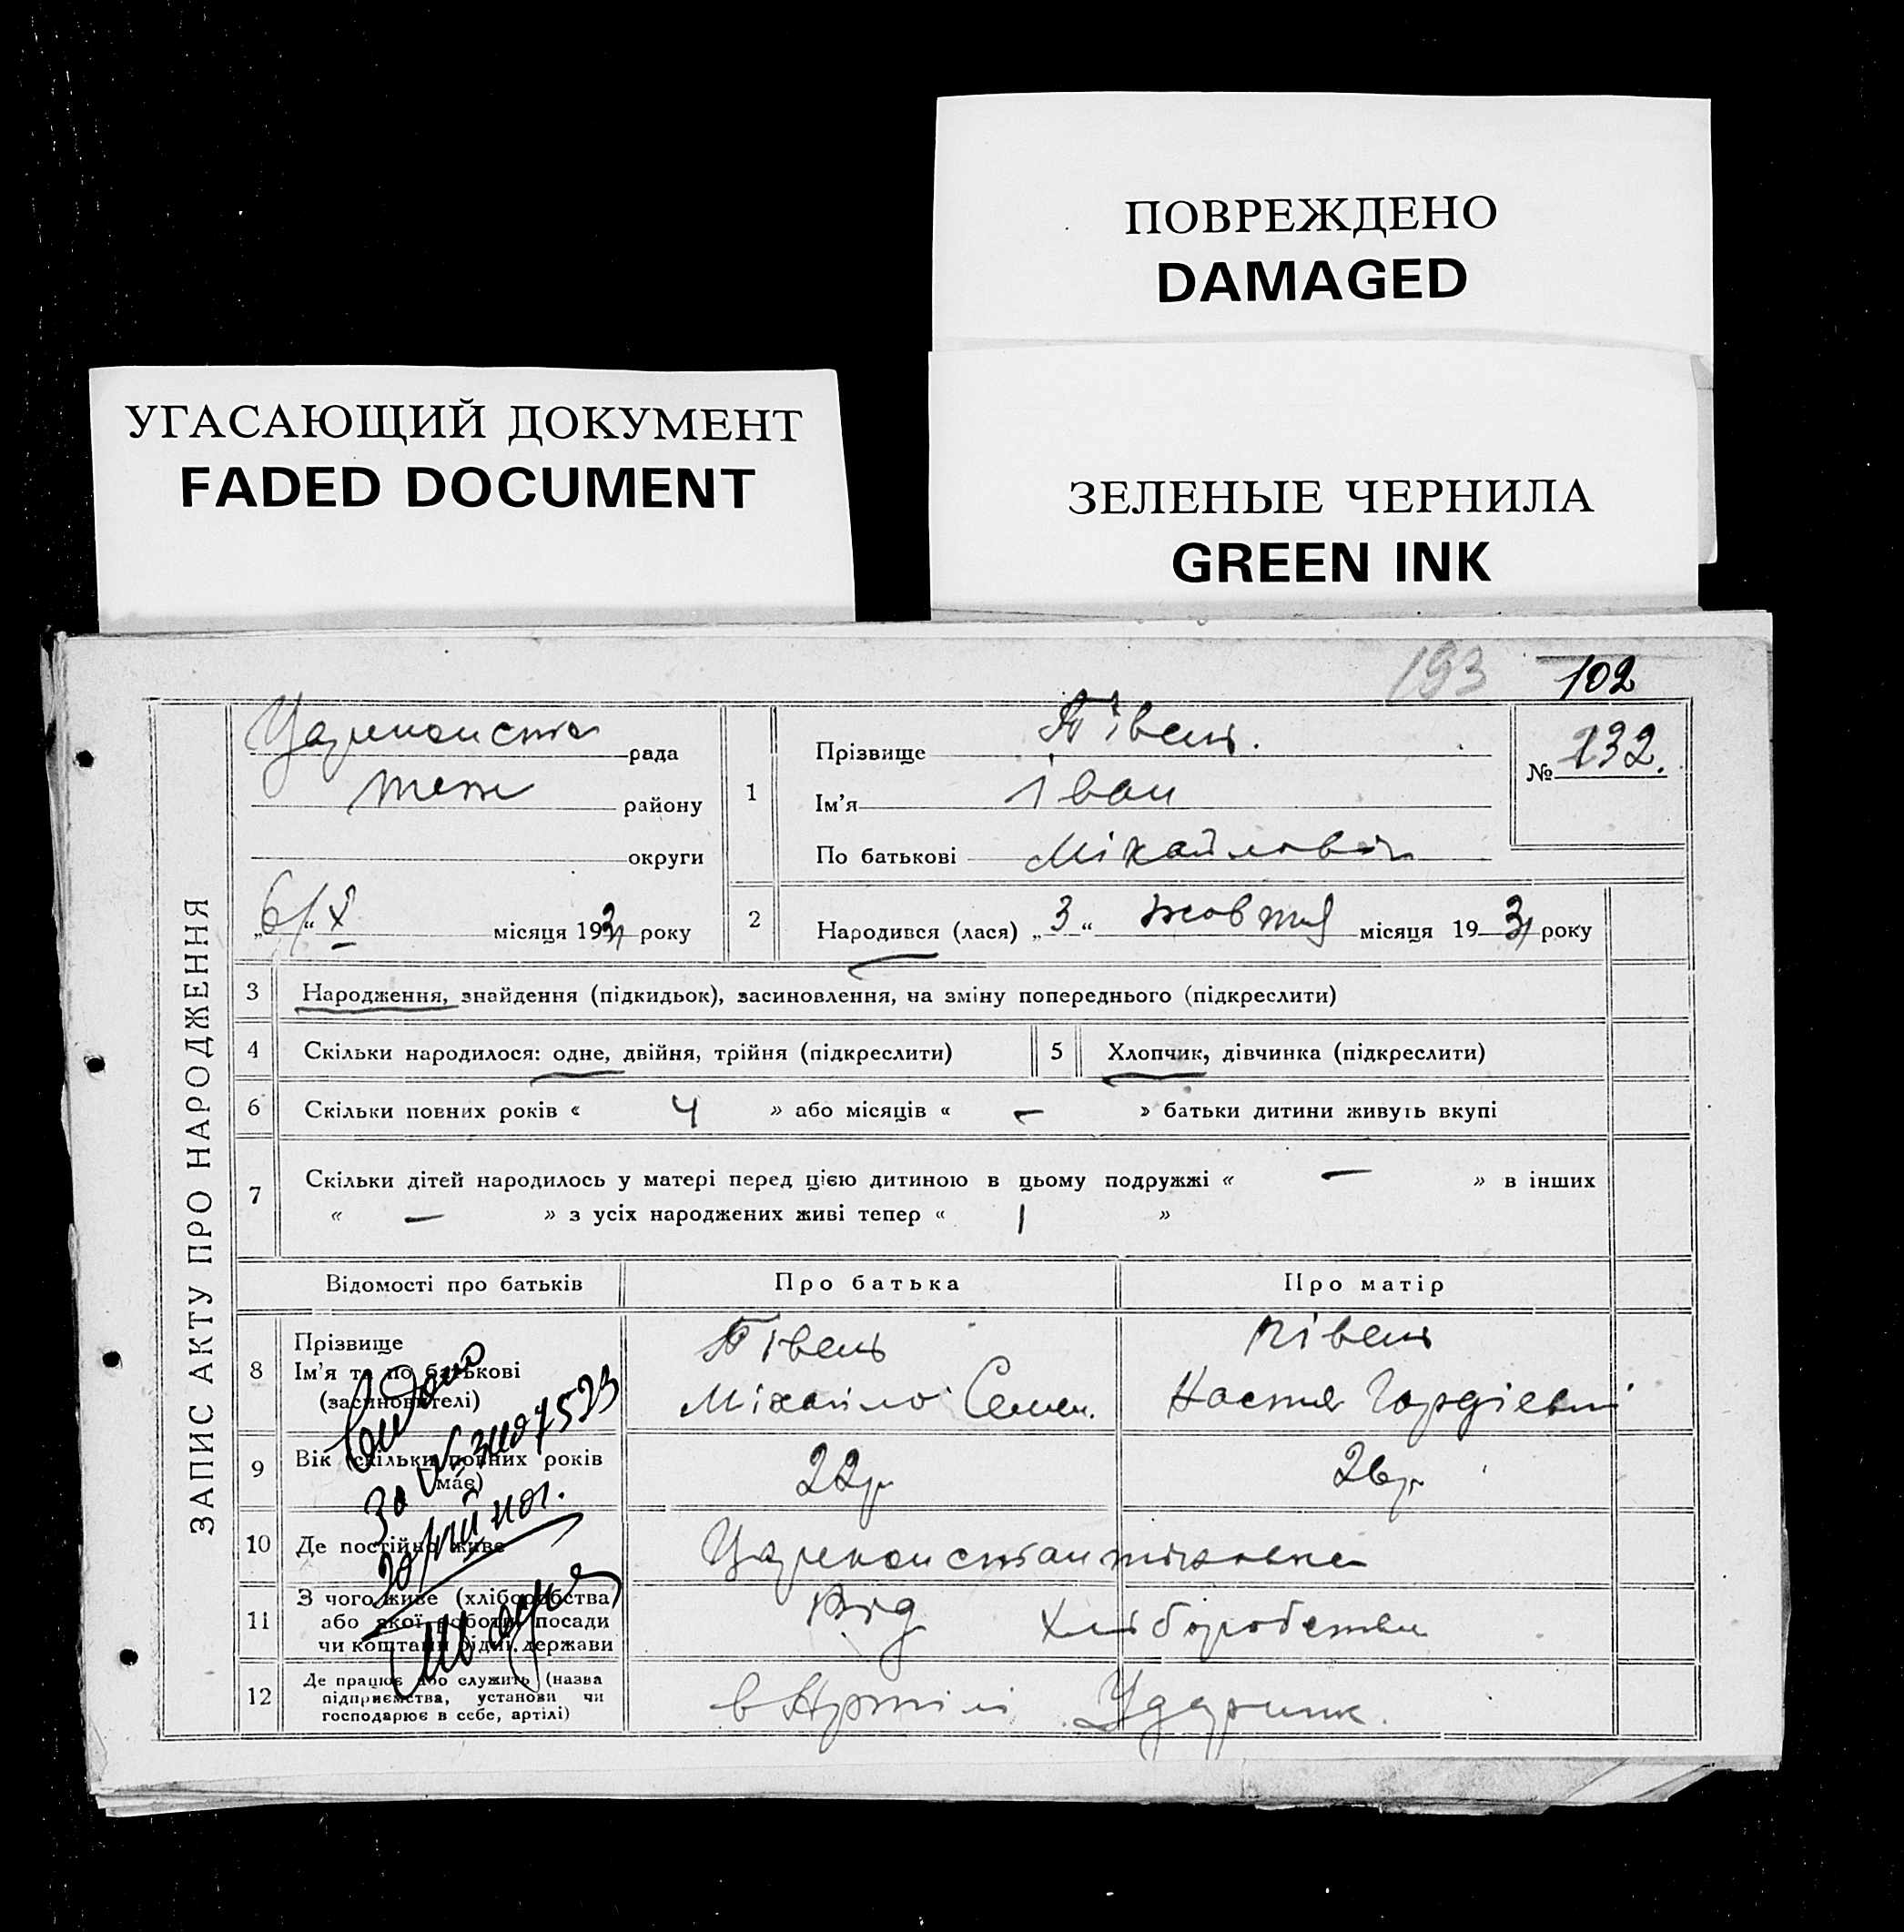 ПОВРЕЖДЕНО
DAMAGED
УГАСАЮЩИЙ ДОКУМЕНТ
FADED DOCUMENT
ЗЕЛЕНЫЕ ЧЕРНИЛА
GREEN INK
193 102
ЗАПИС АКТУ ПРО НАРОДЖЕННЯ
Цареконста рада
теж району
округи
„6/“ X місяця 1931 року
1
Прізвище Півень.
Ім’я Іван
По батькові Міхайлович
№ 132.
2 Народився (лася) „3“ жовтня місяця 1931 року
3 Народження, знайдення (підкидьок), засиновлення, на зміну попереднього (підкреслити)
4 Скільки народилося: одне, двійня, трійня (підкреслити) 5 Хлопчик, дівчинка (підкреслити)
6 Скільки повних років « 4 » або місяців « – » батьки дитини живуть вкупі
7 Скільки дітей народилось у матері перед цією дитиною в цьому подружжі « – » в інших
« – » з усіх народжених живі тепер « 1 »
Відомості про батьків Про батька Про матір
8 Прізвище Півень Півень
Ім’я та по батькові
(засиновителі) Міхайло Семен. Настя Гордіевні
9 Вік (скільки повних років
має) 22р 26р
10 Де постійно живе Цареконстантиновка
11 З чого живе (хліборобства
або якої роботи, посади Від Хліборобства
чи коштами рідні, держави
12 Де працює або служить (назва
підприємства, установи чи в Артілі Ударник.
господарює в себе, артілі)
Видано